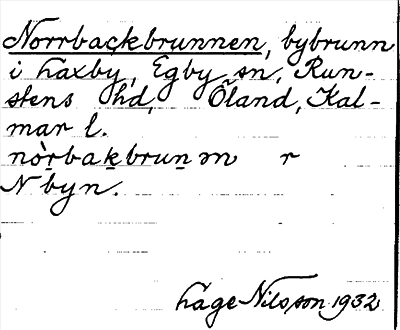 Norrbackbrunnen, bybrunn
i Laxby, Egby sn, Run-
stens hd, Öland, Kal-
mar l.
nòrbakbrunən r
N byn.
Håge Nilsson 1932